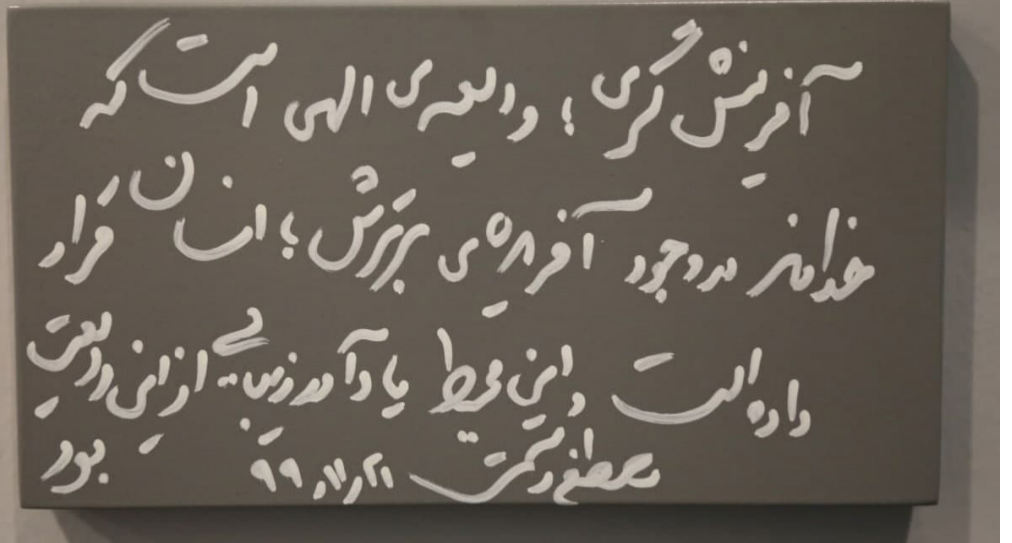 آفرینش گری؛ ودیعه‌ی الهی است که
خداوند در وجود آفریده‌ی برترش؛ انسان قرار
داده است و این محیط یادآور زیبایی از این ودیعت
بود
مصطفی ۹۹